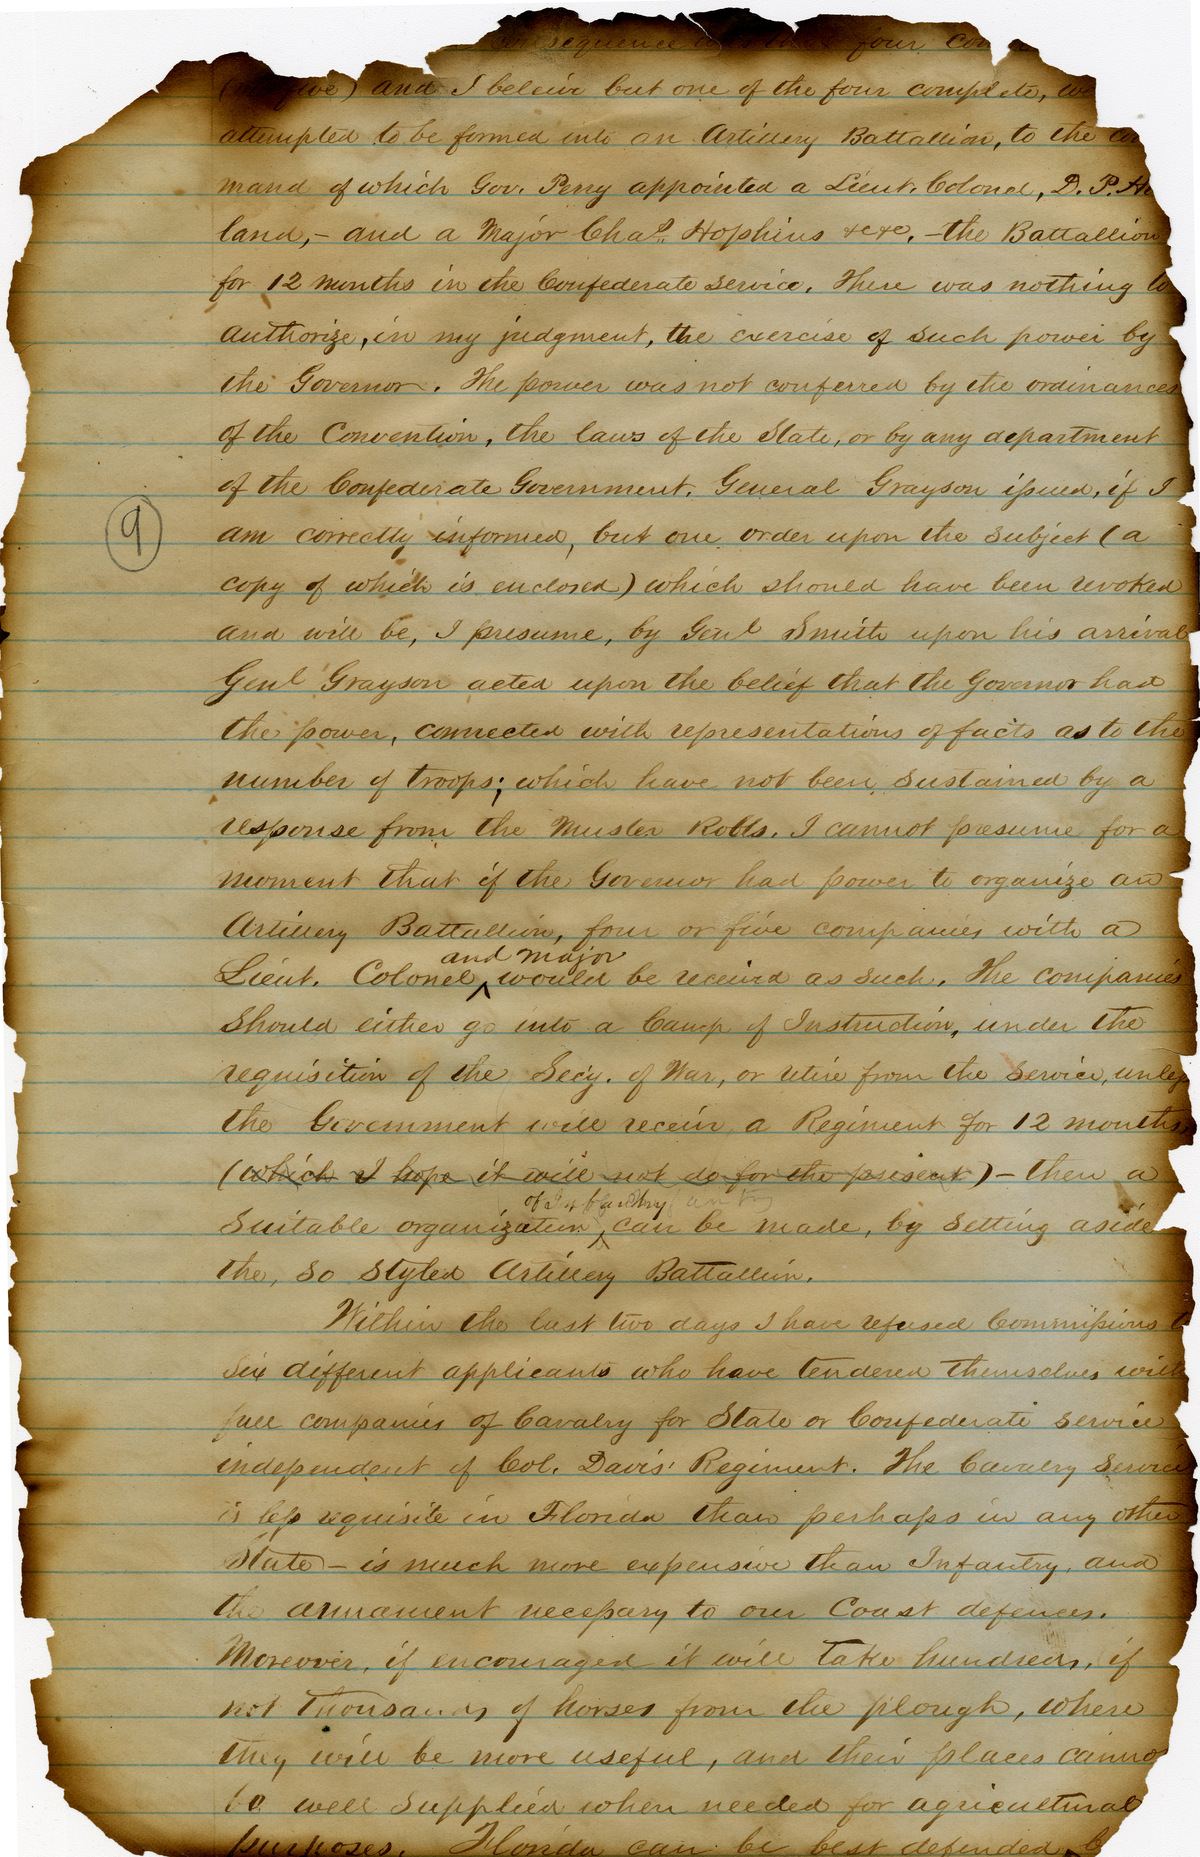 consequence four
and I beleive but one of the four complete,
attempted to be formed into an Artillery Battallion, to the
mand of which Gov. Perry appointed a Lieut. Colonel, D. P. Ho
land, - and a Major Chas. Hopkins &c &c. - the Battallion
for 12 months in the Confederate service. There was nothing to
authorize, in my judgment, the exercise of such power by
the Governor. The power was not conferred by the ordinances
of the Convention, the laws of the State, or by any department
of the Confederate Government. General Grayson issued, if I
9
am correctly informed, but one order upon the subject (a
copy of which is enclosed) which should have been revoked
and will be, I presume, by Genl Smith upon his arrival
Genl Grayson acted upon the belief that the Governor had
the power, connected with representations of facts as to the
number of troops; which have not been sustained by a
response from the Muster Rolls. I cannot presume for a
moment that if the Governor had power to organize an
Artillery Battallion, four or five companies with a
and major
Lieut. Colonel ^ would be receivd as such. The companies
should either go into a Camp of Instruction, under the
requisition of the Secy. of War, or retire from the service, unless
the Government will receive a Regiment for 12 months,
(which I hope it will not do for the present) - then a
of Infantry
suitable organization ^ can be made, by setting aside
the, so styled Artillery Battallion.
Within the last two days I have refused Commissions
six different applicants who have tendered themselves with
full companies of Cavalry for State or Confederate service
independent of Col. Davis' Regiment. The Cavalry service
is less requisite in Florida than perhaps in any other
State - is much more expensive than Infantry, and
the armament necessary to our Coast defences.
Moreover, if encouraged it will take hundreds, if
not thousands of horses from the plough, where
they will be more useful, and their places cannot
be well supplied when needed for agricultural
purposes. Florida can be best defended